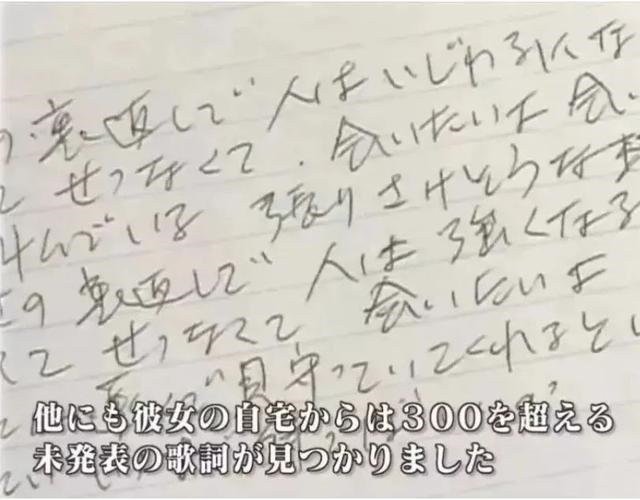 の裏返しで 人はいじわるにな
せつなくて 会いたいよ 会い
叫んでいる 張りさけそうな
の裏返しで 人は強くなる
て せつなくて 会いたいよ
見守っていてくれると
他にも彼女の自宅からは300を超える
未発表の歌詞が見つかりました